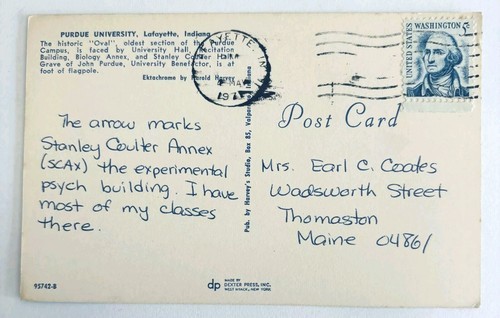 PURDUE UNIVERSITY, Lafayette, Indiana
The historic "Oval", oldest section of the Purdue
Campus, is faced by University Hall, Recitation
Building, Biology Annex, and Stanley Coulter Hall.
Grave of John Purdue, University Benefactor, is at
foot of flagpole.
Ektachrome by Harold Harvey
LAFAYETTE, IN
MAY
197
UNITED STATES
WASHINGTON
5c
The arrow marks
Stanley Coulter Annex
(SCAX) the experimental
psych building. I have
most of my classes
there.
Pub. by Harvey's Studio, Box 85, Valparaiso, Indiana
Post Card
Mrs. Earl C. Coates
Wadsworth Street
Thomaston
Maine 04861
95742-B
dp
MADE BY
DEXTER PRESS, INC.
WEST NYACK, NEW YORK